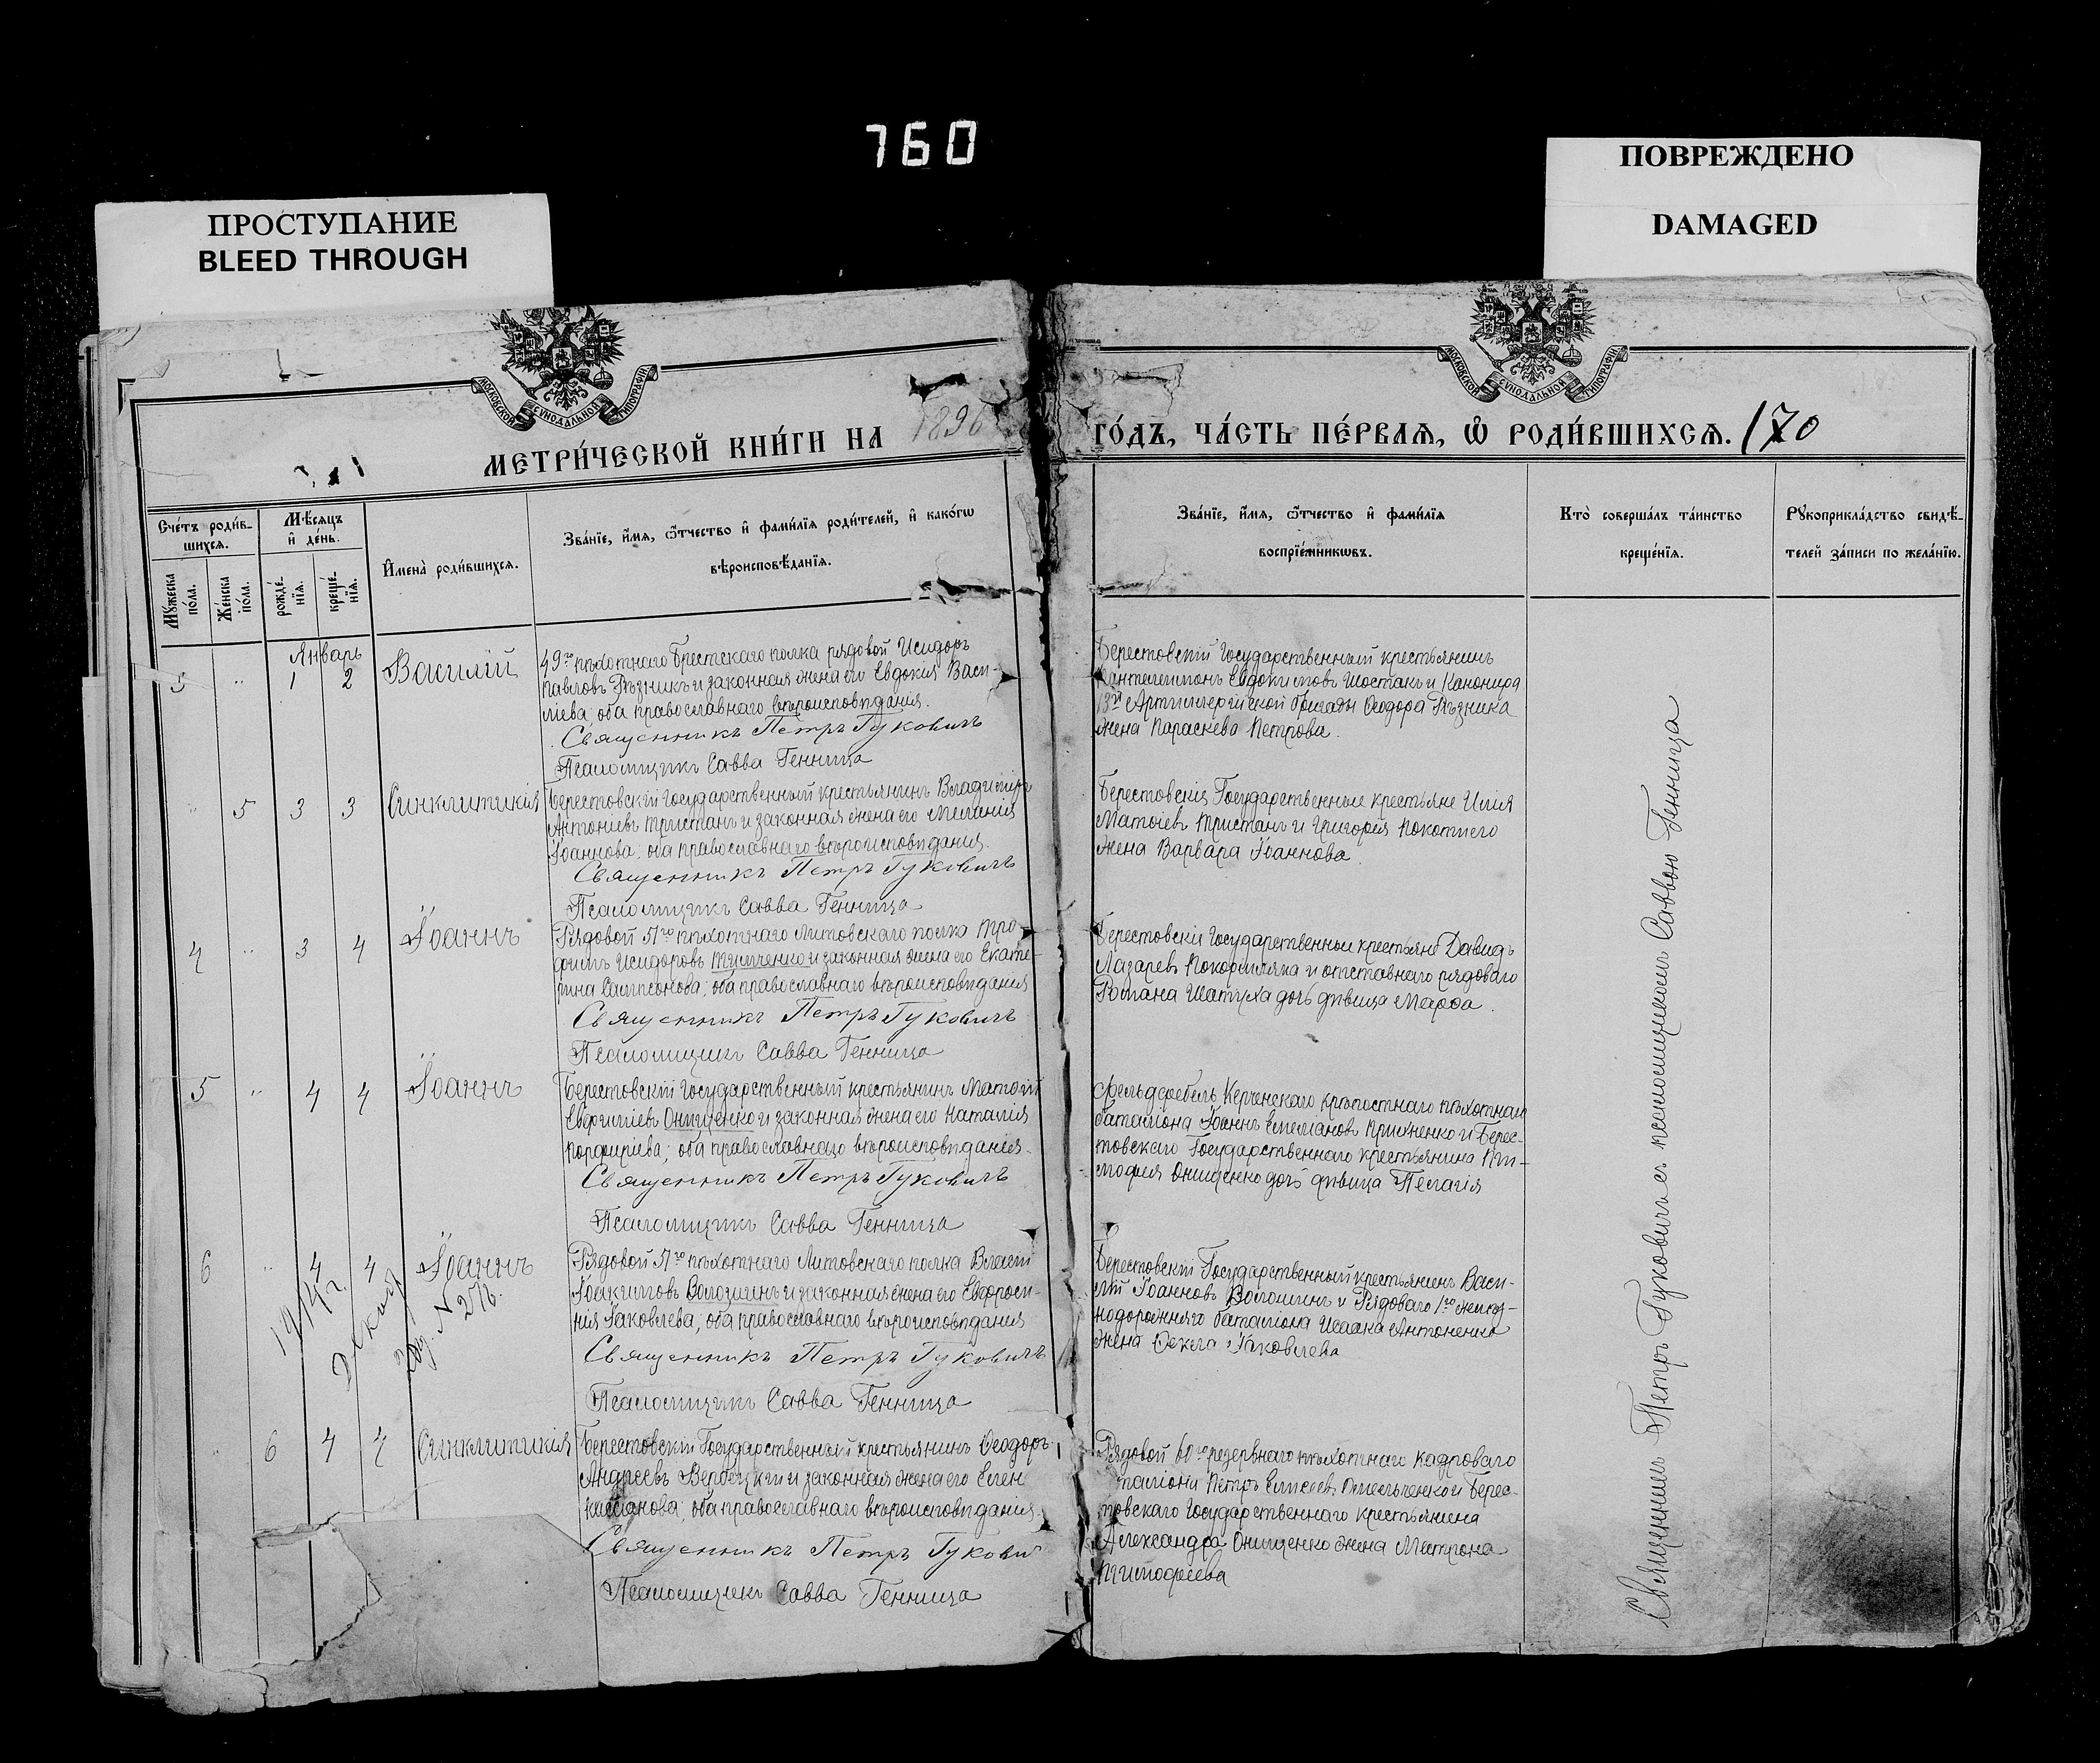 760
ПРОСТУПАНИЕ
BLEED THROUGH
ПОВРЕЖДЕНО
DAMAGED
МОСКОВСКОЙ СѴНОДАЛЬНОЙ ТИПОГРАФІИ
МОСКОВСКОЙ СѴНОДАЛЬНОЙ ТИПОГРАФІИ
МЕТРИ́ЧЕСКОЙ КНИ́ГИ НА 1896
ГО́ДЪ, ЧА́СТЬ ПЕ́РВАЯ, Ѽ РОДИ́ВШИХСЯ. 170
Сче́тъ роди́в-
шихся.
Мѣ́сяцъ
и҆ де́нь.
И҆мена̀ роди́вшихся.
Зва́нїе, и҆́мя, ѻ҆́тчество и҆ фами́лїя роди́телей, и҆ како́гѡ
вѣроисповѣ́данїя.
Мꙋ́жеска
по́ла.
Же́нска
по́ла.
рожде́-
нїя.
креще́-
нїя.
Зва́нїе, и҆́мя, ѻ҆́тчество и҆ фами́лїя
воспрїе́мникѡвъ.
Кто̀ соверша́лъ та́инство
креще́нїя.
Рꙋкоприкла́дство свидѣ́-
телей за́писи по жела́нїю.
Январь
3 " 1 2 Василій
49го пѣхотнаго Брестскаго полка рядовой Исидоръ
Павловъ Рѣзникъ и законная жена его Евдокія Васи-
ліева; оба православнаго вѣроисповѣданія.
Священникъ Петръ Гуковичъ
Псаломщикъ Савва Генница
Берестовскій Государственный крестьянинъ
Пантелеимонъ Евдокимовъ Шостакъ и Канонира
13й Артиллерійской бригады Ѳеодора Рѣзника
жена Параскева Петрова.
" 5 3 3 Синклитикія
Берестовскій Государственный крестьянинъ Владиміръ
Антоніевъ Тристанъ и законная жена его Меланія
Іоаннова; оба православнаго вѣроисповѣданія.
Священникъ Петръ Гуковичъ
Псаломщикъ Савва Генница
Берестовскіе Государственные крестьяне Илія
Матѳіевъ Тристанъ и Григорія Кокотіего
жена Варвара Іоаннова.
4 " 3 4 Іоаннъ
Рядовой 51го пѣхотнаго Литовскаго полка Тро-
фимъ Исидоровъ Тимченко и законная жена его Екате-
рина Сампсонова; оба православнаго вѣроисповѣданія
Священникъ Петръ Гуковичъ
Псаломщикъ Савва Генница
Берестовскіе Государственные крестьяне Давидъ
Лазаревъ Покормляка и отставнаго рядоваго
Романа Шатуха дочь дѣвица Марѳа.
5 " 4 4 Іоаннъ
Берестовскій Государственный крестьянинъ Матѳій
Онищенко и законная жена его Наталія
Порфиріева; оба православнаго вѣроисповѣданія.
Священникъ Петръ Гуковичъ
Псаломщикъ Савва Генница
Фельдфебель Керченскаго крѣпостнаго пѣхотнаго
баталіона Іоаннъ Емеліановъ и Берес-
товскаго Государственнаго крестьянина Ти-
моѳея Онищенко дочь дѣвица Пелагія
6 " 4 4 Іоаннъ
Рядовой 51го пѣхотнаго Литовскаго полка Власій
Іоакимовъ Волошинъ и законная жена его Евфроси-
нія Іаковлева; оба православнаго вѣроисповѣданія
Священникъ Петръ Гуковичъ
Псаломщикъ Савва Генница
Берестовскій Государственный крестьянинъ Васи-
лій Іоанновъ Волошинъ и Рядоваго 1го желѣз-
нодорожняго баталіона Исаака Антоненко
жена Ѳекла Іаковлева
1914 г.
276.
" 6 4 4 Синклитикія
Берестовскій Государственный крестьянинъ Ѳеодоръ
Андреевъ Вербецкій и законная жена его Елен
Кассіанова; оба православнаго вѣроисповѣданія.
Священникъ Петръ Гукови
Псаломщикъ Савва Генница
Рядовой 60го резервнаго пѣхотнаго кадроваго
таліона Петръ Елисеевъ Омельченко и Берес-
товскаго Государственнаго крестьянина
Александра Онищенко жена Матрона
Тимоѳеева
Священникъ Петръ Гуковичъ съ псаломщикомъ Саввою Генница